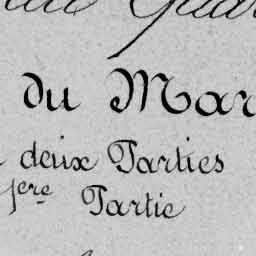 du Mar
deux Parties
1ère Partie